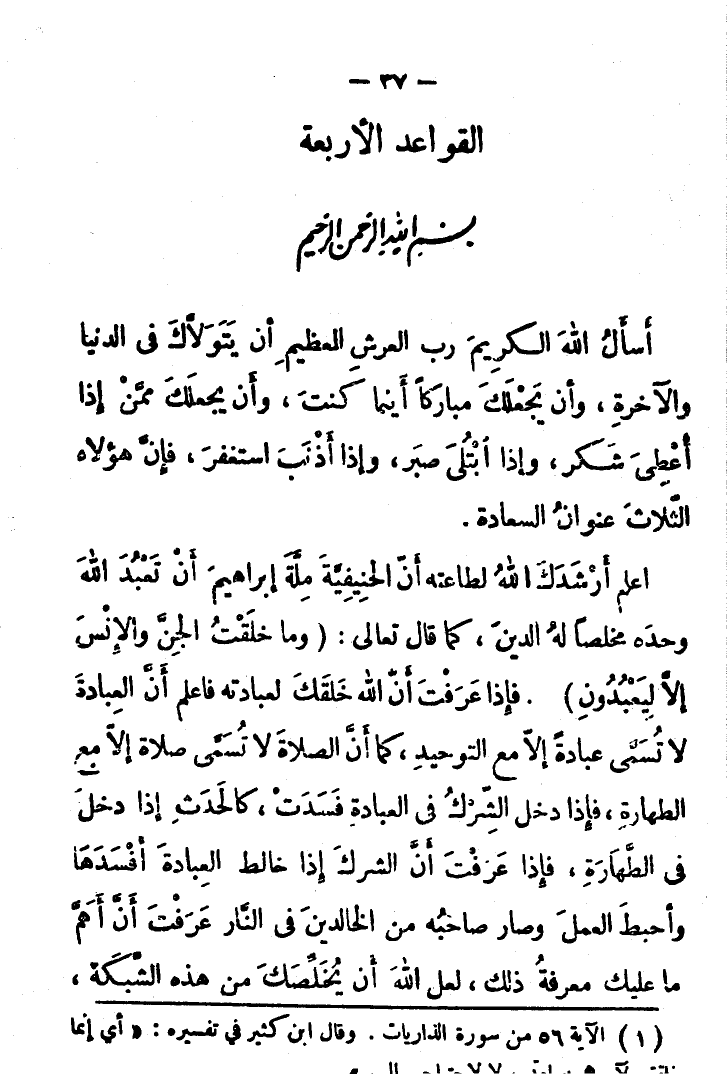 — ٣٧ —
القواعد الأربعة
بسم الله الرحمن الرحيم
أسأَلُ اللهَ الكرِيمَ رب العرشِ العظيمِ أن يَتَوَلاَّكَ فى الدنيا
والآخرةِ ، وأن يَجْعَلَكَ مباركاً أَينما كنتَ ، وأَن يجعلَكَ ممَّنْ إذا
أُعْطِىَ شَكر ، وإذا ابْتُلِىَ صبَر ، وإذا أَذْنَبَ استغفرَ ، فإنَّ هؤلاه
الثّلاثَ عنوانُ السعادة .
اعلم أَرْشَدَكَ اللهُ لطاعته أنّ الحنِيفيَّةَ مِلَّةَ إبراهيمَ أنْ تَعَبُدَ اللهَ
وحدَه مخلصاً لهُ الدينَ ، كما قال تعالى : ( وما خلَقْتُ الجنَّ والإِنْسَ
إلاَّ لِيَعْبُدُونِ ) . فإذا عَرَفْتَ أنّ الله خَلقَكَ لعبادته فاعلم أَنَّ العِبادةَ
لا تُسَمَّى عبادةً إلاّ مع التوحيدِ ، كما أَنَّ الصلاةَ لا تُسَمَّى صلاة إلاّ مع
الطهارةِ ، فإِذا دخل الشِّرْكُ فى العبادةِ فَسَدَتْ ، كالَحدَثِ إذا دخلَ
فى الطَّهَارَةِ ، فإذا عَرَفْتَ أَنَّ الشركَ إذا خالط العِبادةَ أفْسَدَهَا
وأحبطَ العملَ وصار صاحبُه من الخالدينَ فى النَّار عَرَفْتَ أنَّ أَهَمَّ
ما عليك معرفةُ ذلك ، لعل اللهَ أن يُخَلِّصَكَ من هذه الشَّبَكَة ،
( ١ ) الآية ٥٦ من سورة الذاريات . وقال ابن كثير فى تفسيره : « أي إنما